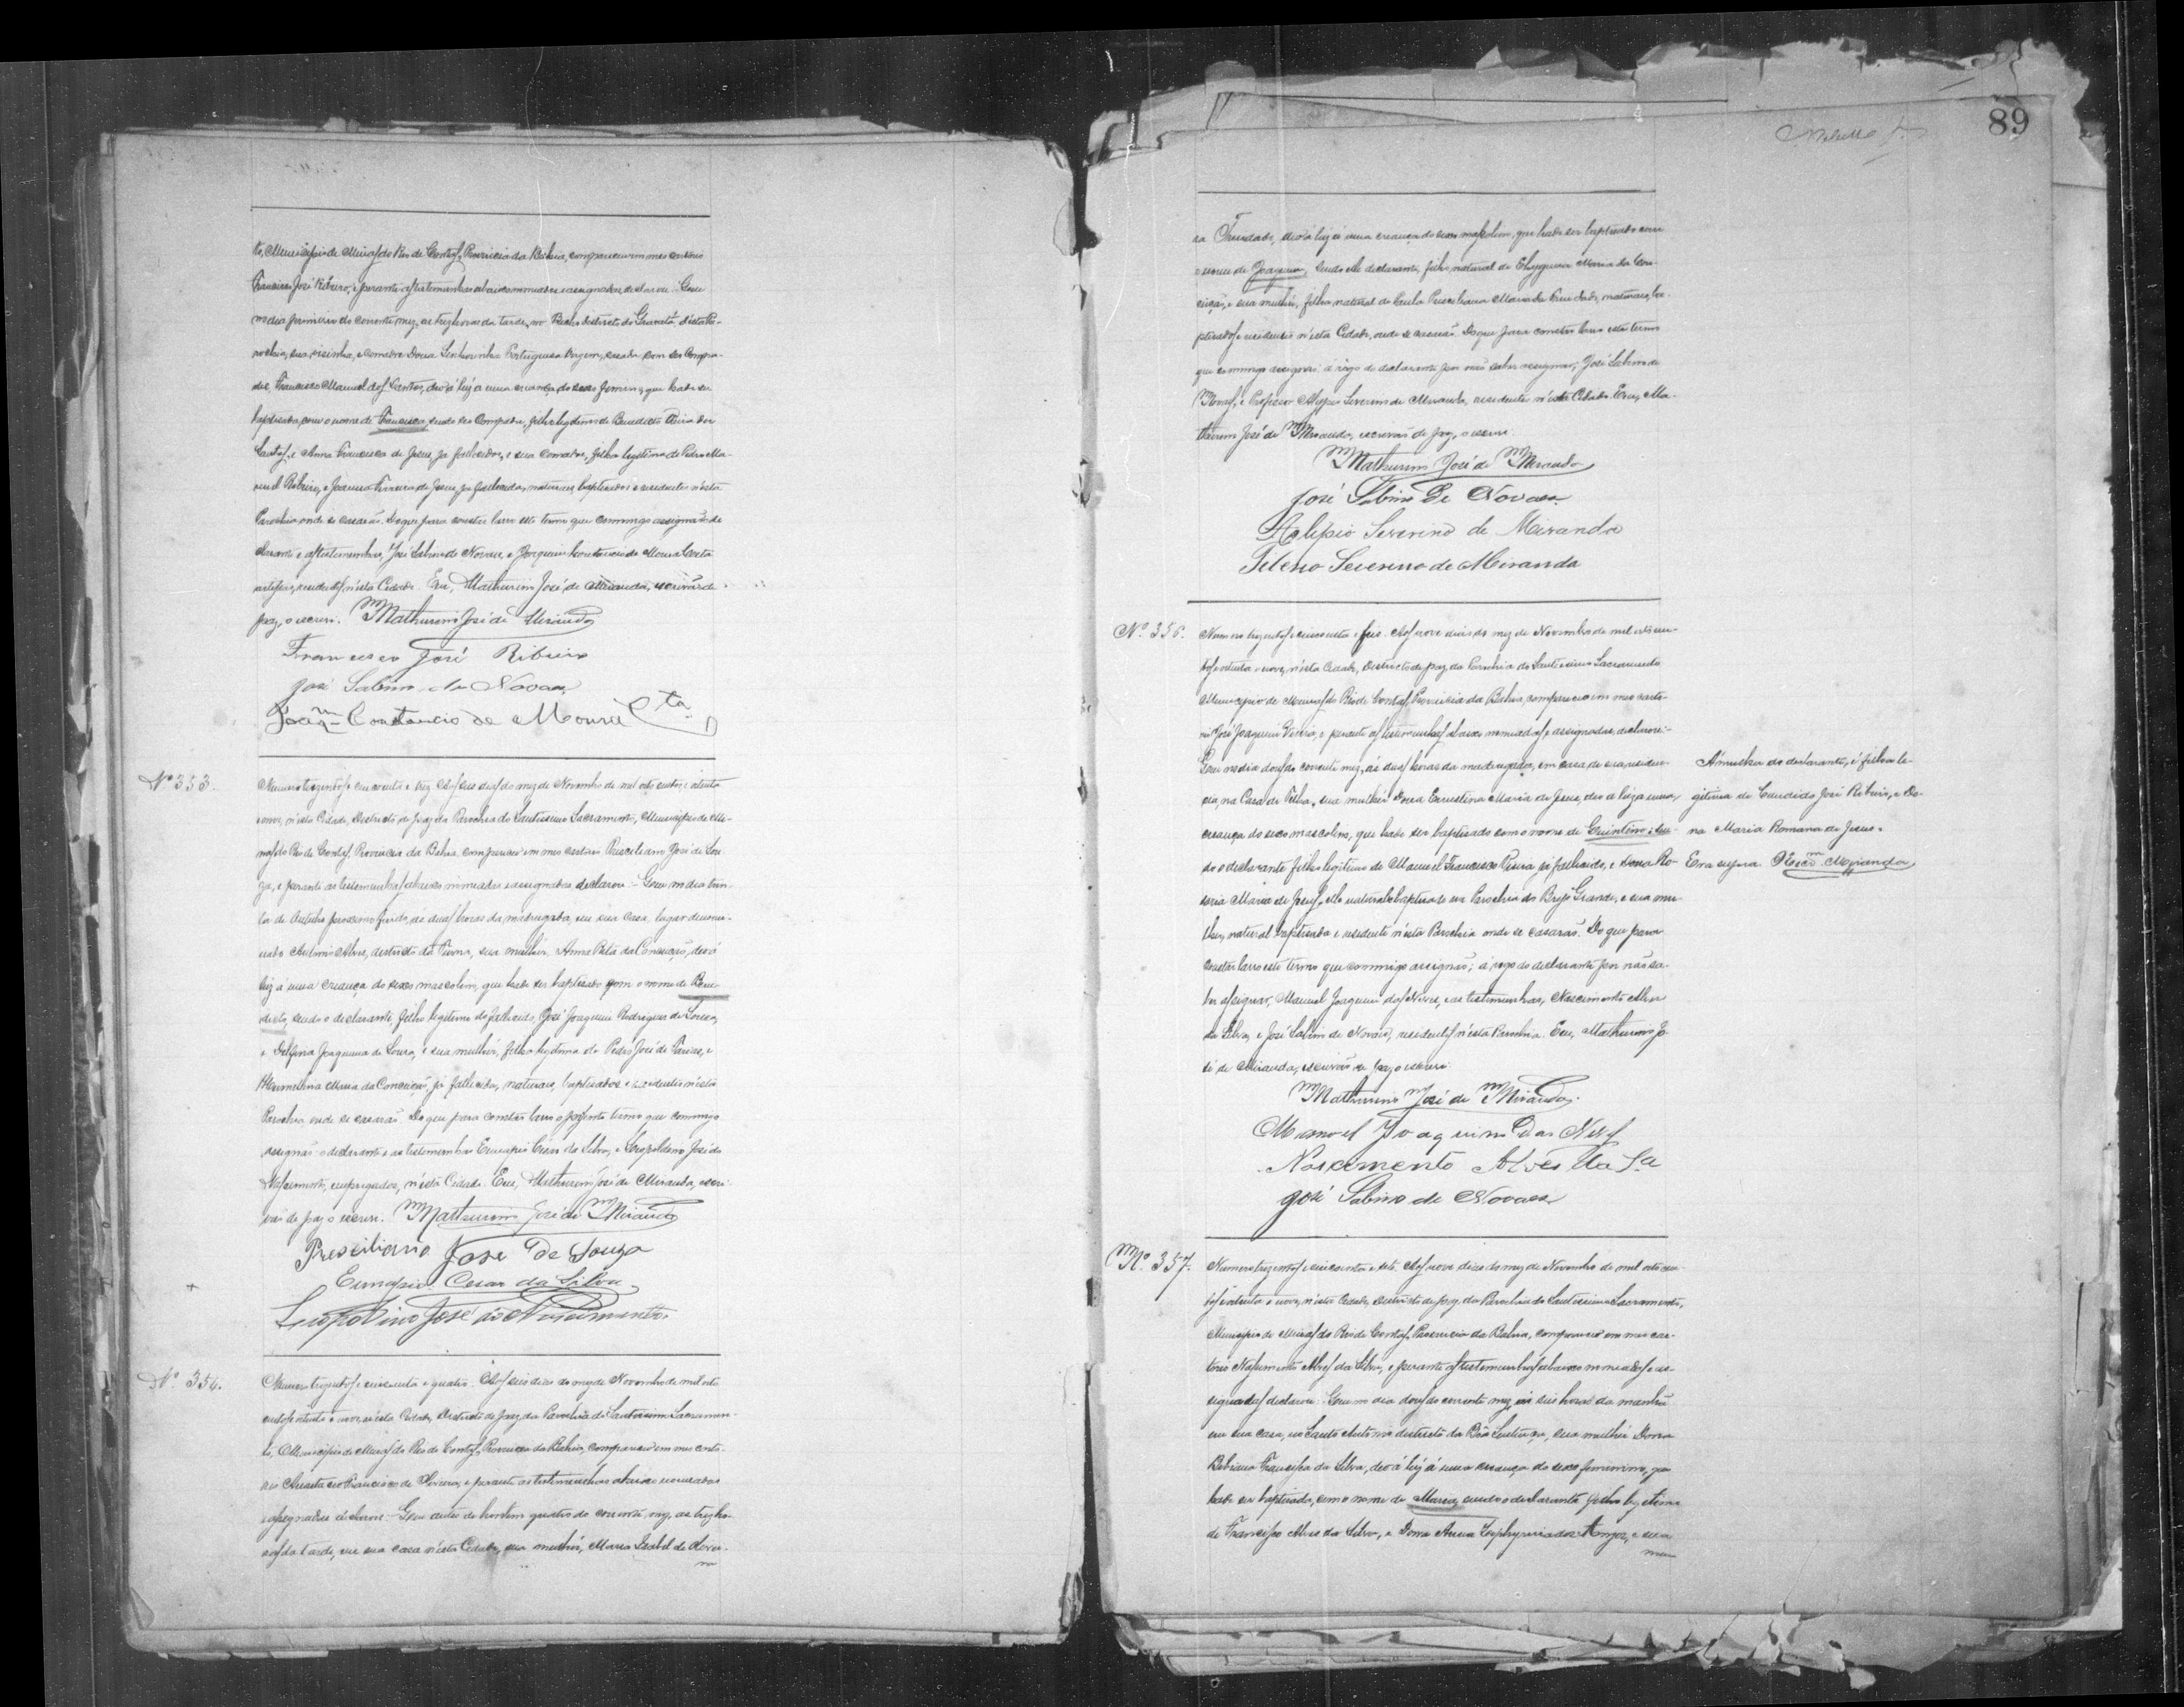 to, Municipio de Minas do Rio de Contas, Provincia da Bahia, compareceu em meo cartorio
Francisco José Ribeiro, e perante as testemunhas abaixo nomeadas e assignadas, declarou: Que
no dia primeiro do corrente mez, as tres horas da tarde, no Riacho districto do Gravatá d'esta Pa-
rochia, sua visinha, e comadre Dona Senhorinha Portugueza Virgem, casada com seo Compa-
dre, Francisco Manuel dos Santos, deo á luz a uma criança do sexo feminino, que hade ser
baptisada, com o nome de Francisca, sendo seo Compadre, filho legitimo de Benedicto dos
Santos, e Anna Francisca de Jesus, ja fallecidos, e sua comadre, filha legitima de Pedro Ma-
nuel Ribeiro, e Joanna de Jesus, ja fallecida, naturaes, baptisados e residentes n'esta
Parochia onde se casarão. Do que para constar lavro este termo que commigo assignão o de-
clarante e as testemunhas, José Sabino de Novaes, e Joaquim Constancio de Moura Costa
artistas, residentes n'esta Cidade. Eu, Mathurino José de Miranda, escrivão de
paz, o escrevi. Mathurino José de Miranda
Francisco José Ribeiro
José Sabino de Novaes
Joaqm Constancio de Moura Cta
Nº 353.
Numero trezentos e cincoenta e trez. Aos seis dias do mez de Novembro de mil oito centos e oitenta
e nove, n'esta Cidade, Districto de paz da Parochia do Santissimo Sacramento, Municipio de Mi-
nas do Rio de Contas, Provincia da Bahia, compareceu em meo cartorio Presciliano José de Sou-
za, e perante as testemunhas abaixo nomeadas e assignadas declarou: Que no dia trin-
ta de Outubro proximo findo, ás duas horas da madrugada, em sua casa, lugar denomi-
nado Antonio Alves, districto da Furna, sua mulher, Anna Rita da Conceição, deo á
luz á uma criança do sexo mascolino, que hade ser baptisado com o nome de Bene-
dicto, sendo o declarante, filho legitimo do fallecido, José Joaquim Rodrigues de Souza,
e Delfina Joaquina de Souza, e sua mulher, filha legitima de Pedro José de Farias, e
Hermelina Maria da Conceição, já fallecidos, naturaes, baptisados e residentes n'esta
Parochia onde se casarão. Do que para constar lavro o presente termo que commigo
assignão o declarante e as testemunhas Eunapio Cesar da Silva, e Leopoldino José do
Nascimento, empregados, n'esta Cidade. Eu, Mathurino José de Miranda, escri-
vão de paz o escrevi. Mathurino José de Miranda
Presciliano José de Souza
Eunapio Cesar da Silva
Leopoldino José do Nascimento
Nº 354.
Numero trezentos e cincoenta e quatro. Aos seis dias do mez de Novembro de mil oito
centos e oitenta e nove, n'esta Cidade, Districto de paz da Parochia do Santissimo Sacramen-
to, Municipio de Minas do Rio de Contas, Provincia da Bahia, compareceo em meo carto-
rio Anastacio Francisco de Oliveira, e perante as testemunhas abaixo nomeadas
e assignadas declarou: Que antes de hontem quatro do corrente mez, as tres ho-
ras da tarde, em sua casa n'esta Cidade, sua mulher, Maria Izabel de
89
sa Trindade, deo á luz á uma creança do sexo masculino, que hade ser baptisado com
o nome de Joaquim, sendo elle declarante, filho natural de Maria da Con-
ceição, e sua mulher, filha natural de Carla Presciliana Maria da Trindade, naturaes, ba-
ptisados e residentes n'esta Cidade, onde se casarão. Do que para constar lavro este termo
que commigo assignão a rogo do declarante por não saber assignar, José Sabino de
Novaes, e Professor Alypio Severino de Miranda, residentes n'esta Cidade. Eu, Ma-
thurino José de Miranda, escrivão de paz, o escrevi.
Mathurino José de Miranda
José Sabino de Novaes
Aslipio Severino de Miranda
Fileno Severino de Miranda
Nº 356.
Numero trezentos e cincoenta e seis. Aos nove dias do mez de Novembro de mil oito cen-
tos e oitenta e nove, n'esta Cidade, Districto de paz da Parochia do Santissimo Sacramento
Municipio de Minas do Rio de Contas, Provincia da Bahia, compareceo em meo carto-
rio José Joaquim Vieira, e perante as testemunhas abaixo nomeadas e assignadas, declarou:-
Que no dia dous do corrente mez, ás duas horas da madrugada, em casa de sua residen-
cia, na Casa de Telha, sua mulher Dona Ernestina Maria de Jesus, deo a luz a uma
creança do sexo mascolino, que hade ser baptisado com o nome de Quintino; sen-
do o declarante filho legitimo de Manoel Francisco Vieira já fallecido, e Dona Ro-
seria Maria de Jesus, elle natural e baptisado na Parochia do Brejo Grande, e sua mu-
lher, natural baptisada e residente n'esta Parochia onde se casarão. Do que para
constar lavro este termo que commigo assignão; a rogo do declarante por não sa-
ber assignar, Manuel Joaquim das Neves, e as testemunhas, Nascimento Alves
da Silva, e José Sabino de Novaes, residentes n'esta Parochia. Eu, Mathurino Jo-
sé de Miranda, escrivão de paz o escrevi.
A mulher do declarante, é filha le-
gitima de Candido José Ribeiro, e Do-
na Maria Romana de Jesus.
Era supra. O Escm Miranda
Mathurino José de Miranda.
Manoel Joaquim Das Neves
Nascimento Alves da Sa
José Sabino de Novaes
Nº 357.
Numero trezentos e cincoenta e sete. Aos nove dias do mez de Novembro de mil oito cen-
tos e oitenta e nove, n'esta Cidade, Districto de paz da Parochia do Santissimo Sacramento,
Municipio de Minas do Rio de Contas, Provincia da Bahia, compareceo em meo car-
torio Nascimento Alves da Silva, e perante as testemunhas abaixo nomeadas e as-
signadas declarou: Que no dia dous do corrente mez, as seis horas da manhã
em sua casa, no Santo Antonio districto da Bôa Sentença, sua mulher Dona
Bibiana Francisca da Silva, deo á luz á uma creança do sexo feminino, que
hade ser baptisada, com o nome de Maria, sendo o declarante filho legitimo
de Francisco Alves da Silva, e Dona Anna Zephyrina dos Anjos, e sua
mu